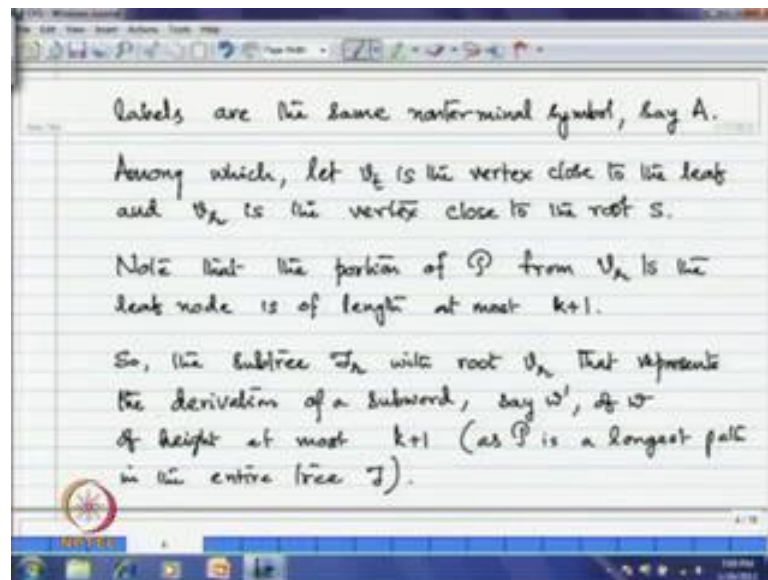 labels are the same nonterminal symbol, say A.
Among which, let v_t is the vertex close to the leaf
and v_r is the vertex close to the root S.
Note that the portion of P from v_r to the
leaf node is of length at most k+1.
So, the subtree T_r with root v_r that represents
the derivation of a subword, say w', of w
of height at most k+1 (as P is a longest path
in the entire tree T).
NPTEL